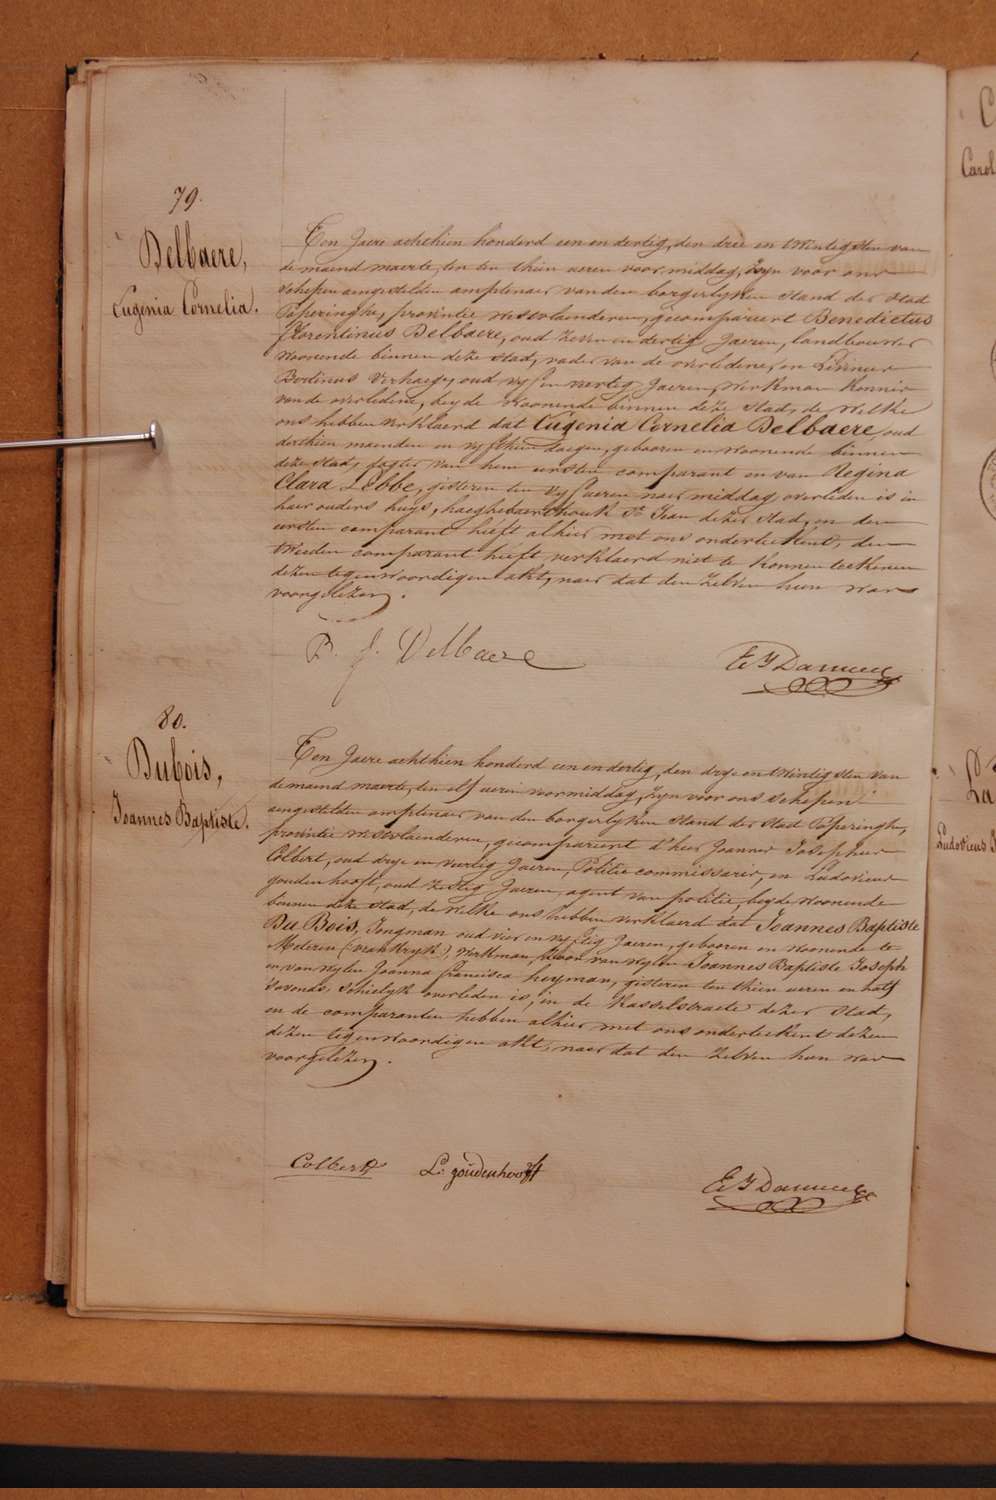 79.
Delbaere,
Eugenia Cornelia.
Ten Jaere achthien honderd een en dertig, den drie en twintigsten van
de maend maerte, ten thien ueren voor middag, zyn voor ons
schepen aengestelden amptenaer van den borgerlyken stand der stad
Poperinghe, provintie Westvlaenderen, gecompareert Benedictus
Florentinus Delbaere, oud zeven en dertig Jaeren, landbouwer
woonende binnen deze stad, vader van de overledene, en
Verhaeghe, oud vyf en veertig Jaeren, Werkman kennis
van de overledene, beyde woonende binnen deze stad, de welke
ons hebben verklaerd dat Eugenia Cornelia Delbaere, oud
derthien maenden en vyfthien daegen, gebooren en woonende binnen
deze stad, dogter van hem eersten comparant en van Regina
Clara Lebbe, gisteren ten vyf ueren naer middag overleden is in
haer ouders huys, haeghebaerthouk St Jean dezer stad, en den
eersten comparant heeft alhier met ons onderteekent, den
tweeden comparant heeft verklaerd niet te konnen teekenen
dezen tegenwoordigen akt, naer dat den zelven hun was
voorgelezen.
B. f. Delbaere
80.
DuBois,
Joannes Baptiste.
Ten Jaere achthien honderd een en dertig, den drye en twintigsten van
de maend maerte, ten elf ueren voormiddag, zyn voor ons schepen
aengestelden amptenaer van den borgerlyken stand der stad Poperinghe,
provintie Westvlaenderen, gecompareert d'heer Joannes Josephus
Colbert, oud drye en veertig Jaeren, Politie commissaris, en Ludovicus
goudenhooft, oud zestig Jaeren, agent van politie, beyde woonende
binnen deze stad, de welke ons hebben verklaerd dat Joannes Baptiste
Du Bois, Jongman oud vier en vyftig Jaeren, gebooren en woonende te
Meteren (vrankryk), Werkman, zoon van wylen Joannes Baptiste Joseph
en van wylen Joanna francisca heyman, gisteren ten thien ueren en half
s'avonds, schielyk overleden is, in de Kasselstraete dezer stad,
en de comparanten hebben alhier met ons onderteekent dezen
dezen tegenwoordigen akt, naer dat den zelven hun was
voorgelezen.
Colbert L. goudenhooft